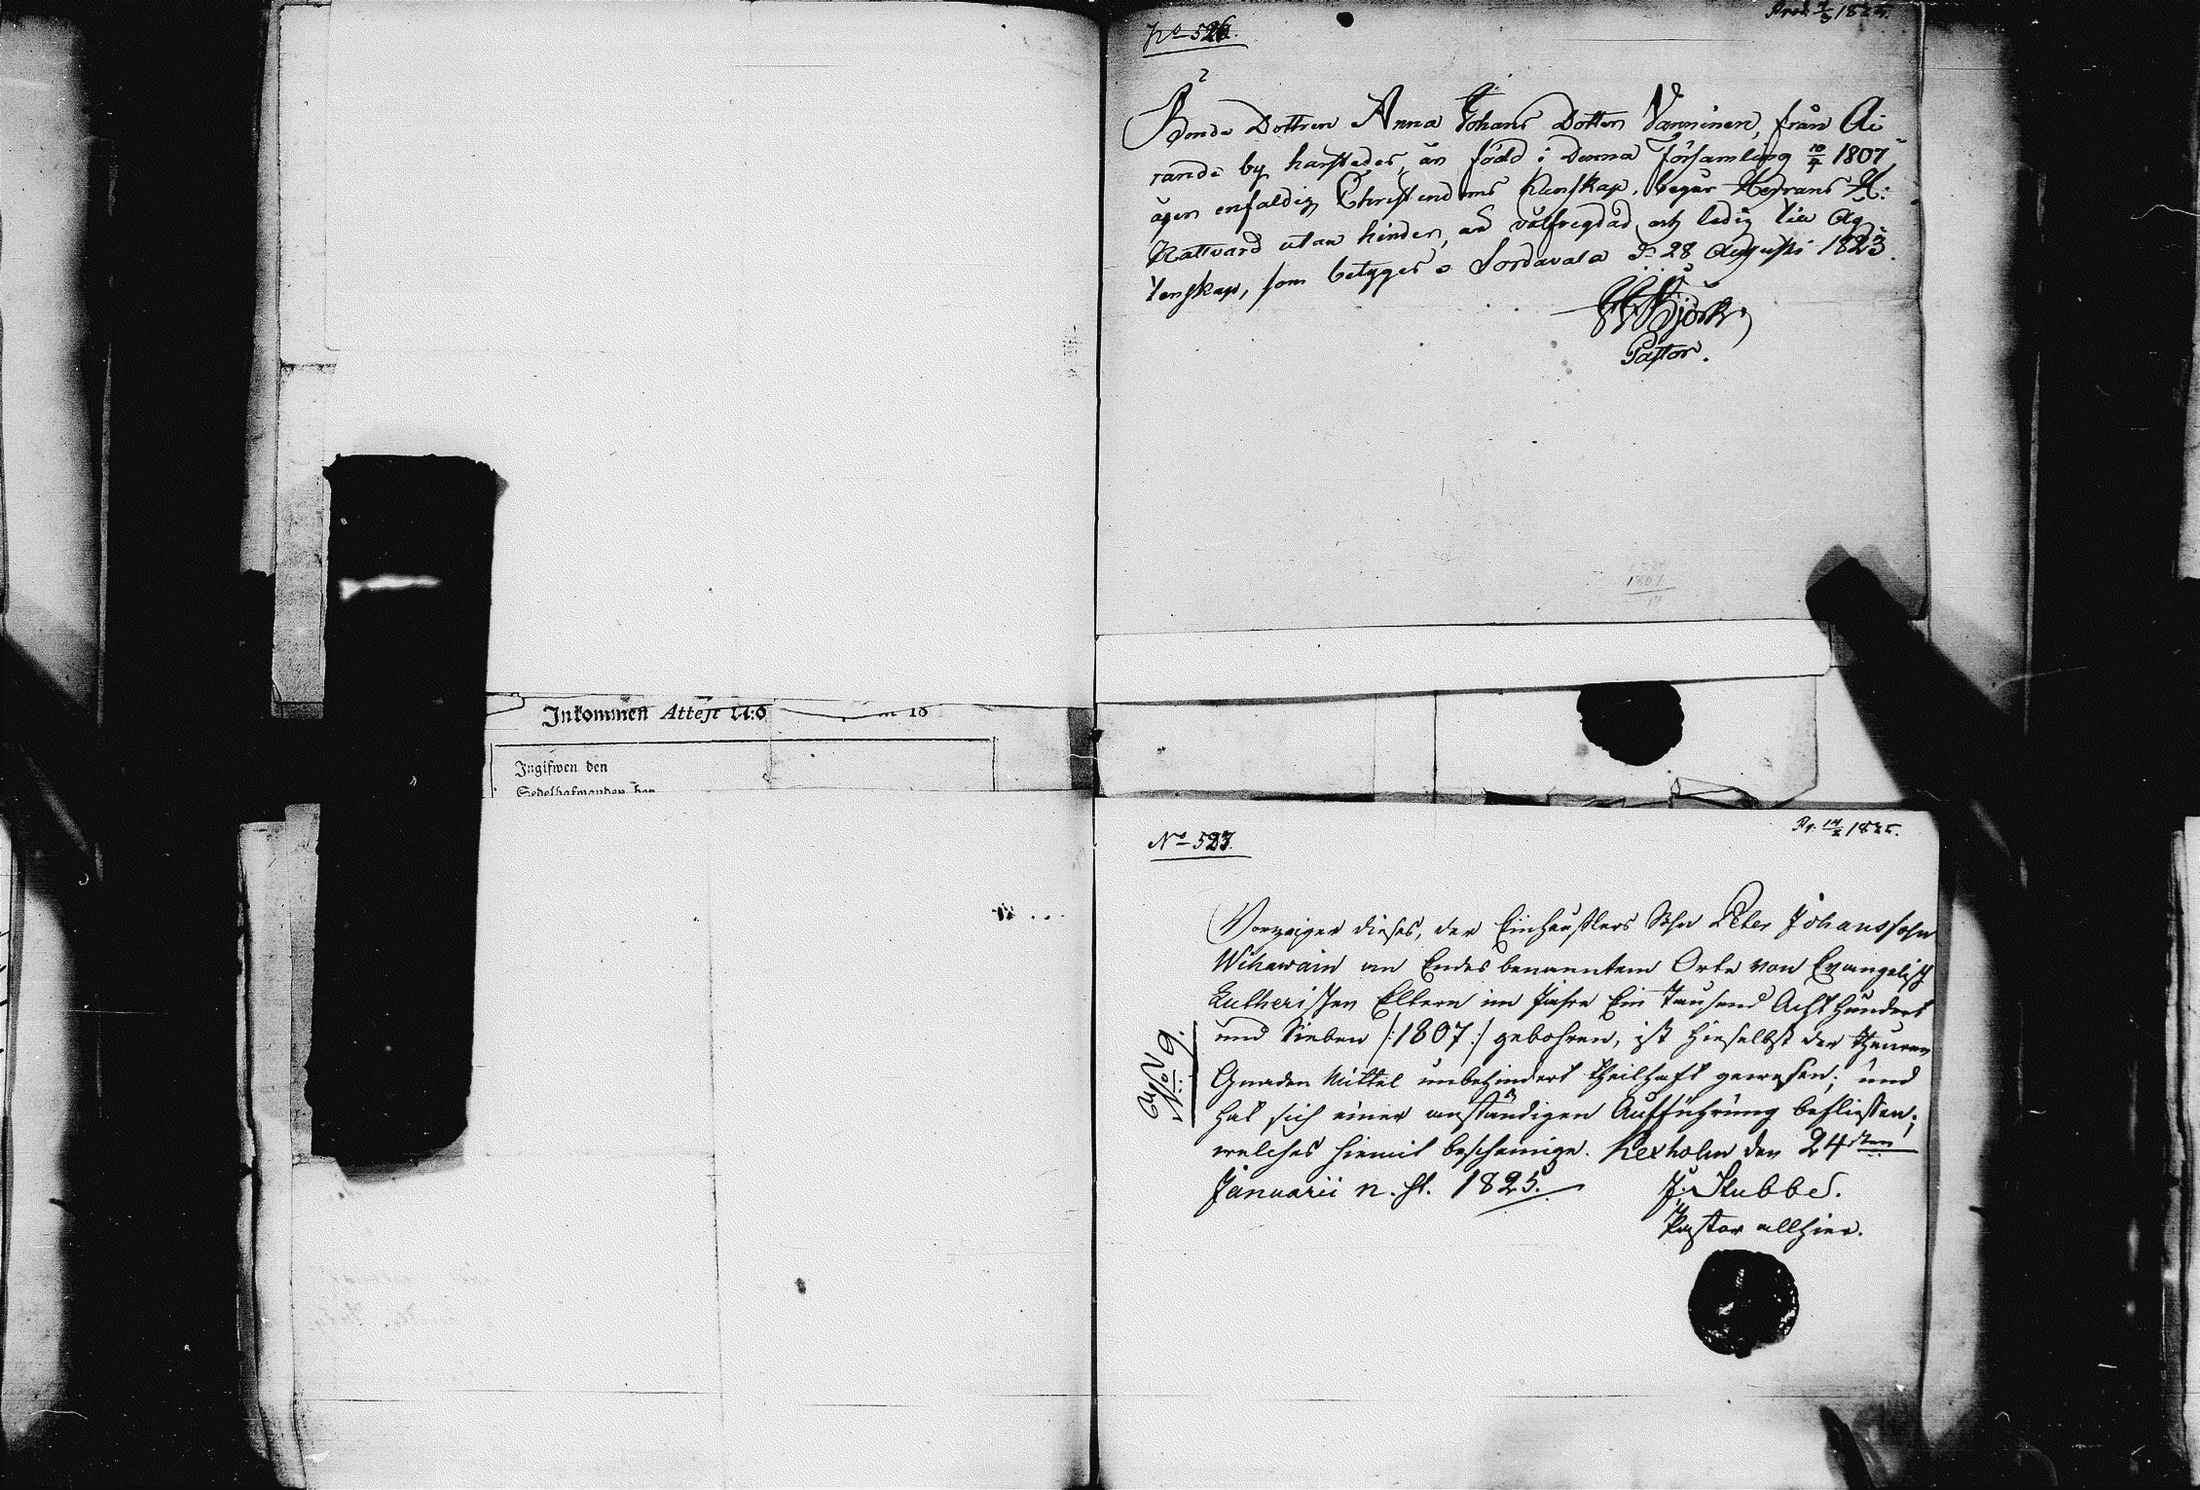 No 526.
Prod. 7/3 1825.
Bonde Dottren Anna Johans Dotter Vanninen, från Ai
rande by härstädes, är född i denna Församling 10/4 1807,
äger enfaldig Christendoms Kunskap, begår Herrans H:
Nattvard utan hinder, är välfregdad och ledig till Äg
tenskap, som betygas. Sordavala d. 28 Augusti 1823.
Björk
Pastor.
1807
17
Inkommen Attest N:o
18
Ingifwen den
Sedelhafwanden har
No 527.
Pr. 14/2 1825.
Vorzeiger dieses, der Einhäuslers Sohn Peter Johanssohn
Wihawain am Endes benanntem Orte von Evangelisch
Lutherischen Eltern im Jahre Ein Tausend Acht Hundert
und Sieben /:1807:/ gebohren, ist hieselbst der theuren
Gnaden Mittel unbehindert theilhaft gewesen; und
hat sich einer anständigen Aufführung beflissen;
welches hiemit bescheinige. Kexholm den 24sten
Januarii n. St. 1825.
J. Stubbe.
Pastor allhier.
N:o 9.